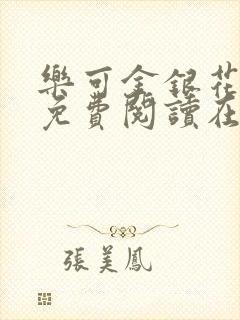 樂可金銀花
免費閱讀在
張美鳳